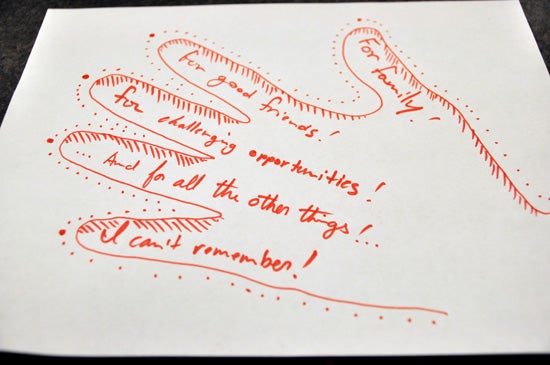 For family!
for good friends!
for challenging opportunities!
And for all the other things!..
I can't remember!